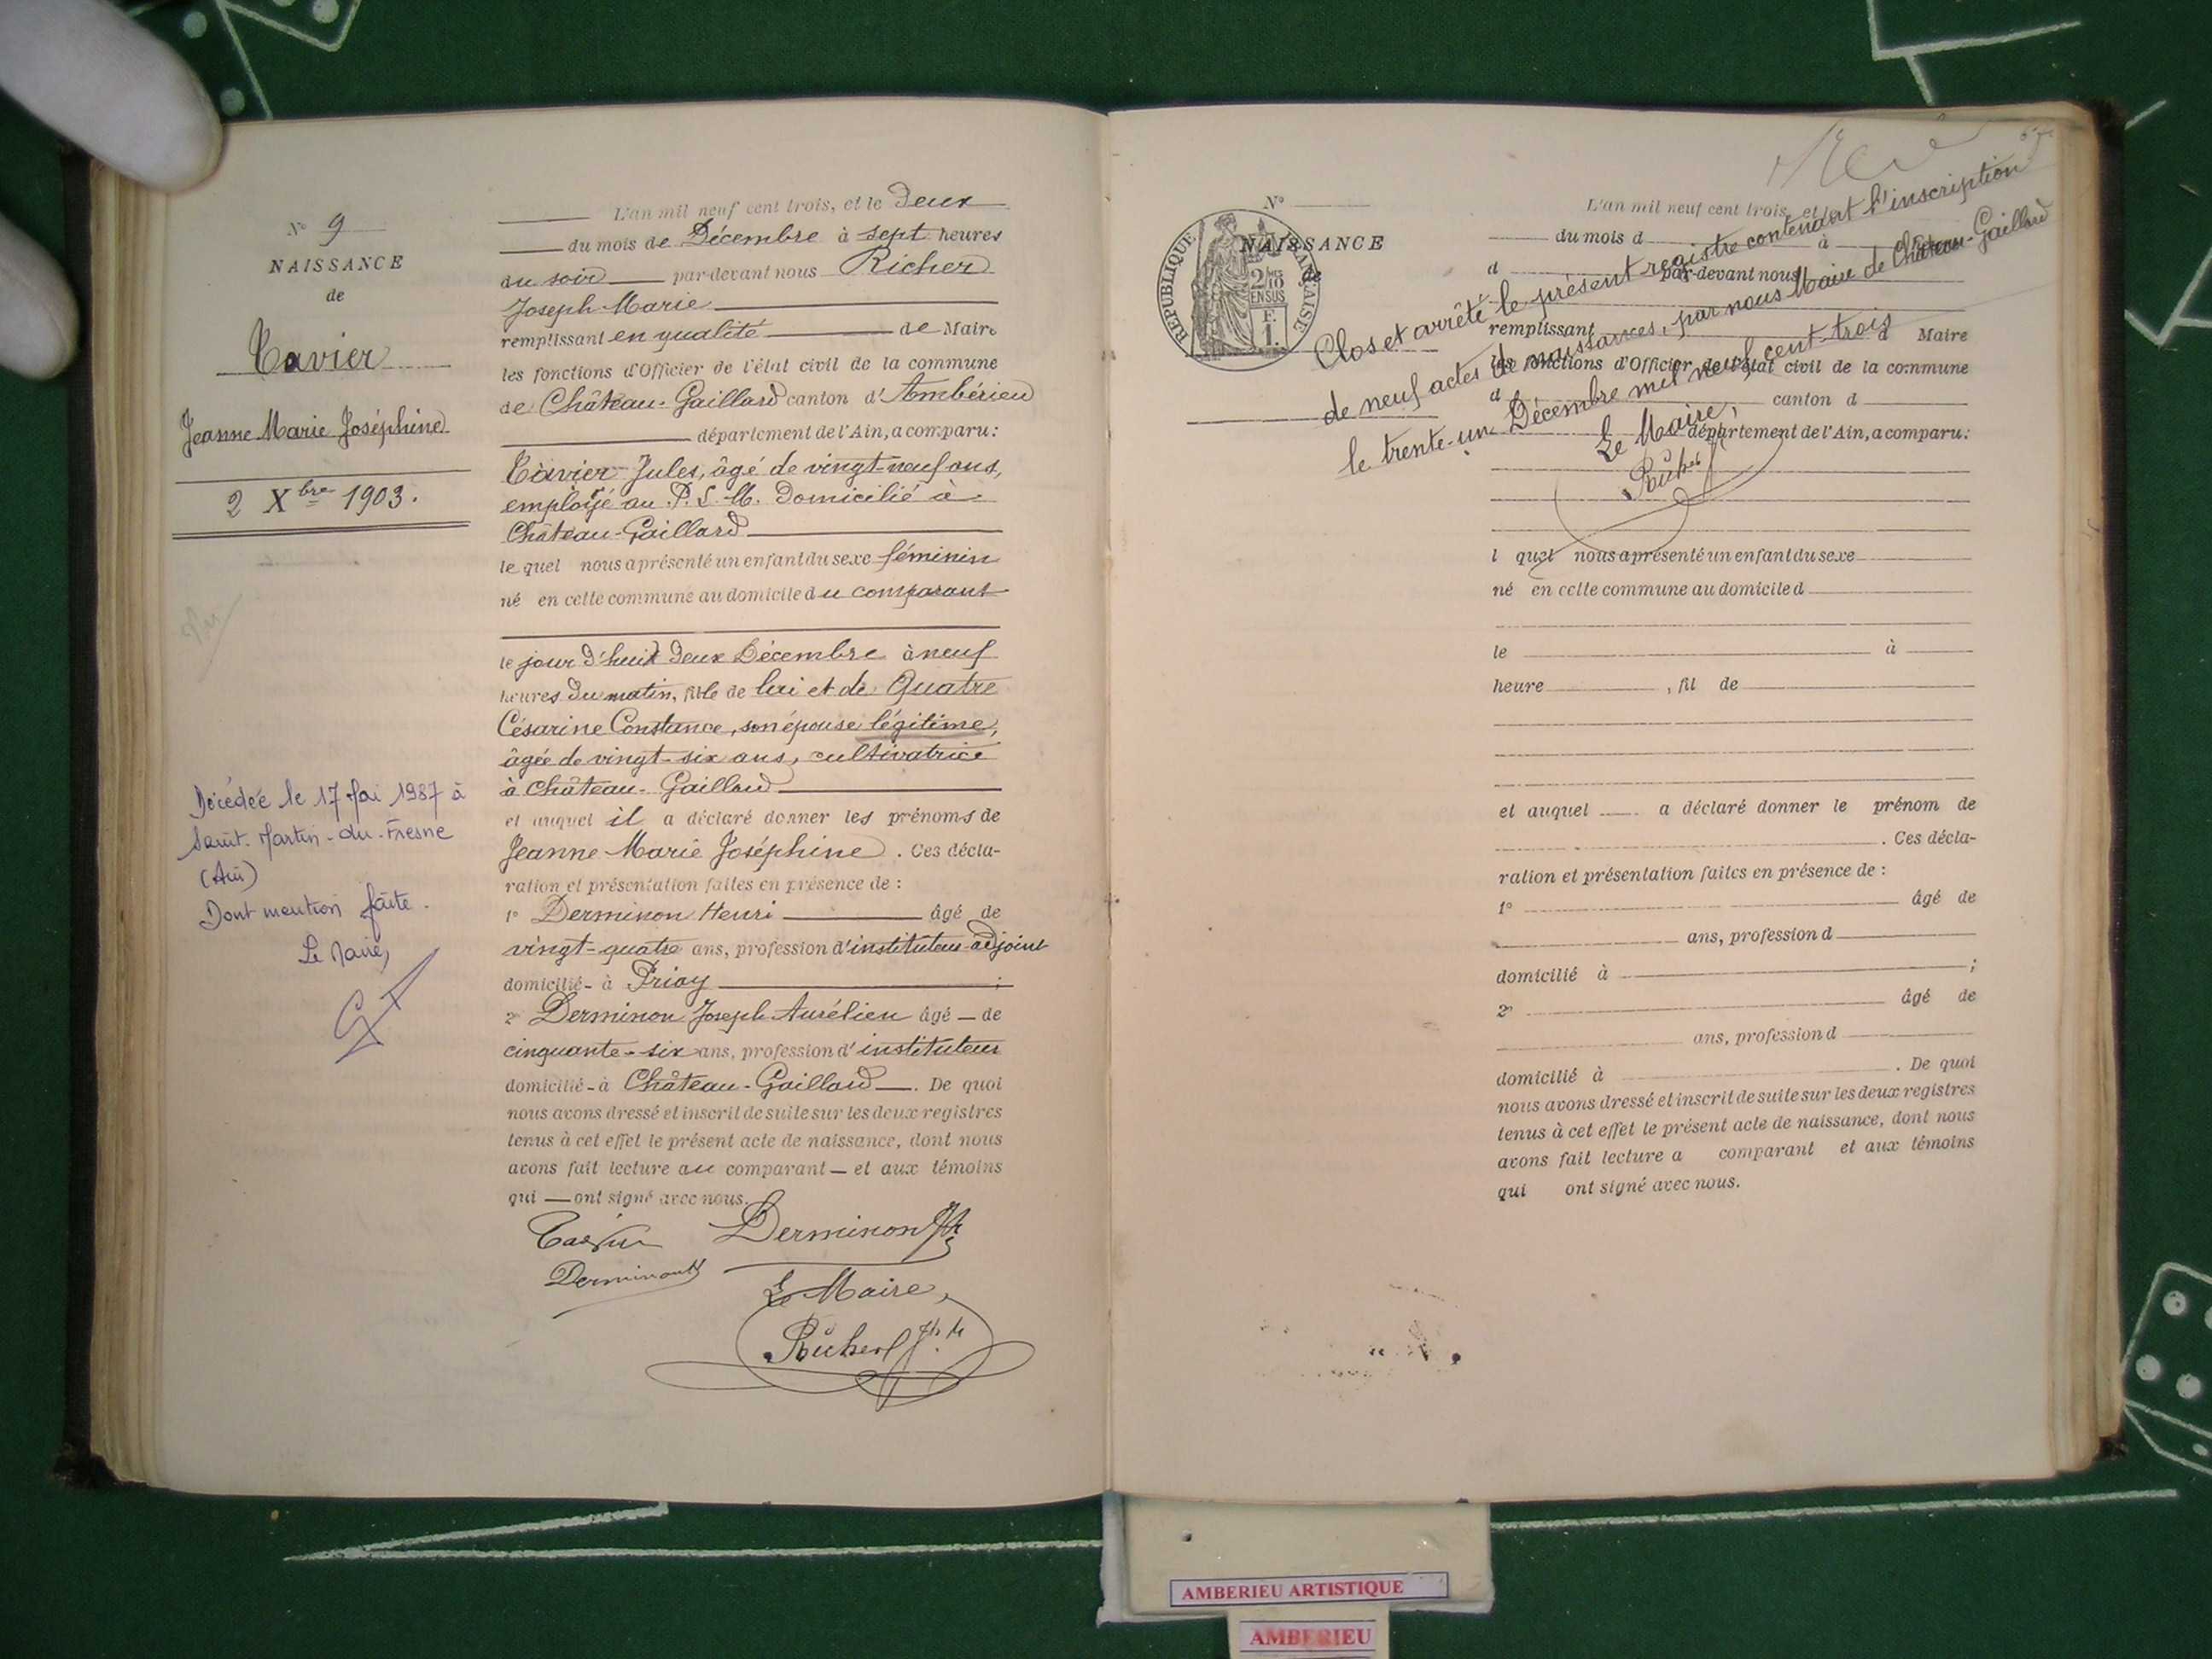 N° 9
NAISSANCE
de
Tavier
Jeanne Marie Joséphine
2 Xbre 1903.
Décédée le 17 Mai 1987 à
Saint-Martin-du-Fresne
(Ain)
Dont mention faite.
Le Maire,
L'an mil neuf cent trois, et le Deux
du mois de Décembre à sept heures
du soir par-devant nous Richer
Joseph-Marie
remplissant en qualité de Maire
les fonctions d'Officier de l'état civil de la commune
de Château-Gaillard canton d'Ambérieu
département de l'Ain, a comparu:
Tavier Jules, âgé de vingt-neuf ans,
employé au P. L. M. Domicilié à
Château-Gaillard
le quel nous a présenté un enfant du sexe féminin
né en cette commune au domicile du comparant
le jour d'huit deux Décembre à neuf
heures du matin, fille de lui et de Quatre
Césarine Constance, son épouse légitime,
âgée de vingt-six ans, cultivatrice
à Château-Gaillard
et auquel il a déclaré donner les prénoms de
Jeanne Marie Joséphine. Ces décla-
ration et présentation faites en présence de :
1° Derminon Henri âgé de
vingt-quatre ans, profession d'instituteur-adjoint
domicilié - à Priay ;
2° Derminon Joseph Aurélien âgé — de
cinquante-six ans, profession d'instituteur
domicilié - à Château-Gaillard. De quoi
nous avons dressé et inscrit de suite sur les deux registres
tenus à cet effet le présent acte de naissance, dont nous
avons fait lecture au comparant — et aux témoins
qui — ont signé avec nous.
Tavier Derminon
Derminon
Le Maire,
Richer
N°
NAISSANCE
de
REPUBLIQUE FRANÇAISE
2/10
EN SUS
F.
1.
L'an mil neuf cent trois, et
du mois d à
d par-devant nous
remplissant d Maire
les fonctions d'Officier de l'état civil de la commune
d canton d
département de l'Ain, a comparu:
Clos et arrêté le présent registre contenant l'inscription
de neuf actes de naissances, par nous Maire de Château-Gaillard
le trente-un Décembre mil neuf cent-trois
Le Maire,
Richer
l quel nous a présenté un enfant du sexe
né en cette commune au domicile d
le à
heure , fil de
et auquel a déclaré donner le prénom de
. Ces décla-
ration et présentation faites en présence de :
1° âgé de
ans, profession d
domicilié à ;
2° âgé de
ans, profession d
domicilié à . De quoi
nous avons dressé et inscrit de suite sur les deux registres
tenus à cet effet le présent acte de naissance, dont nous
avons fait lecture a comparant et aux témoins
qui ont signé avec nous.
AMBERIEU ARTISTIQUE
AMBERIEU